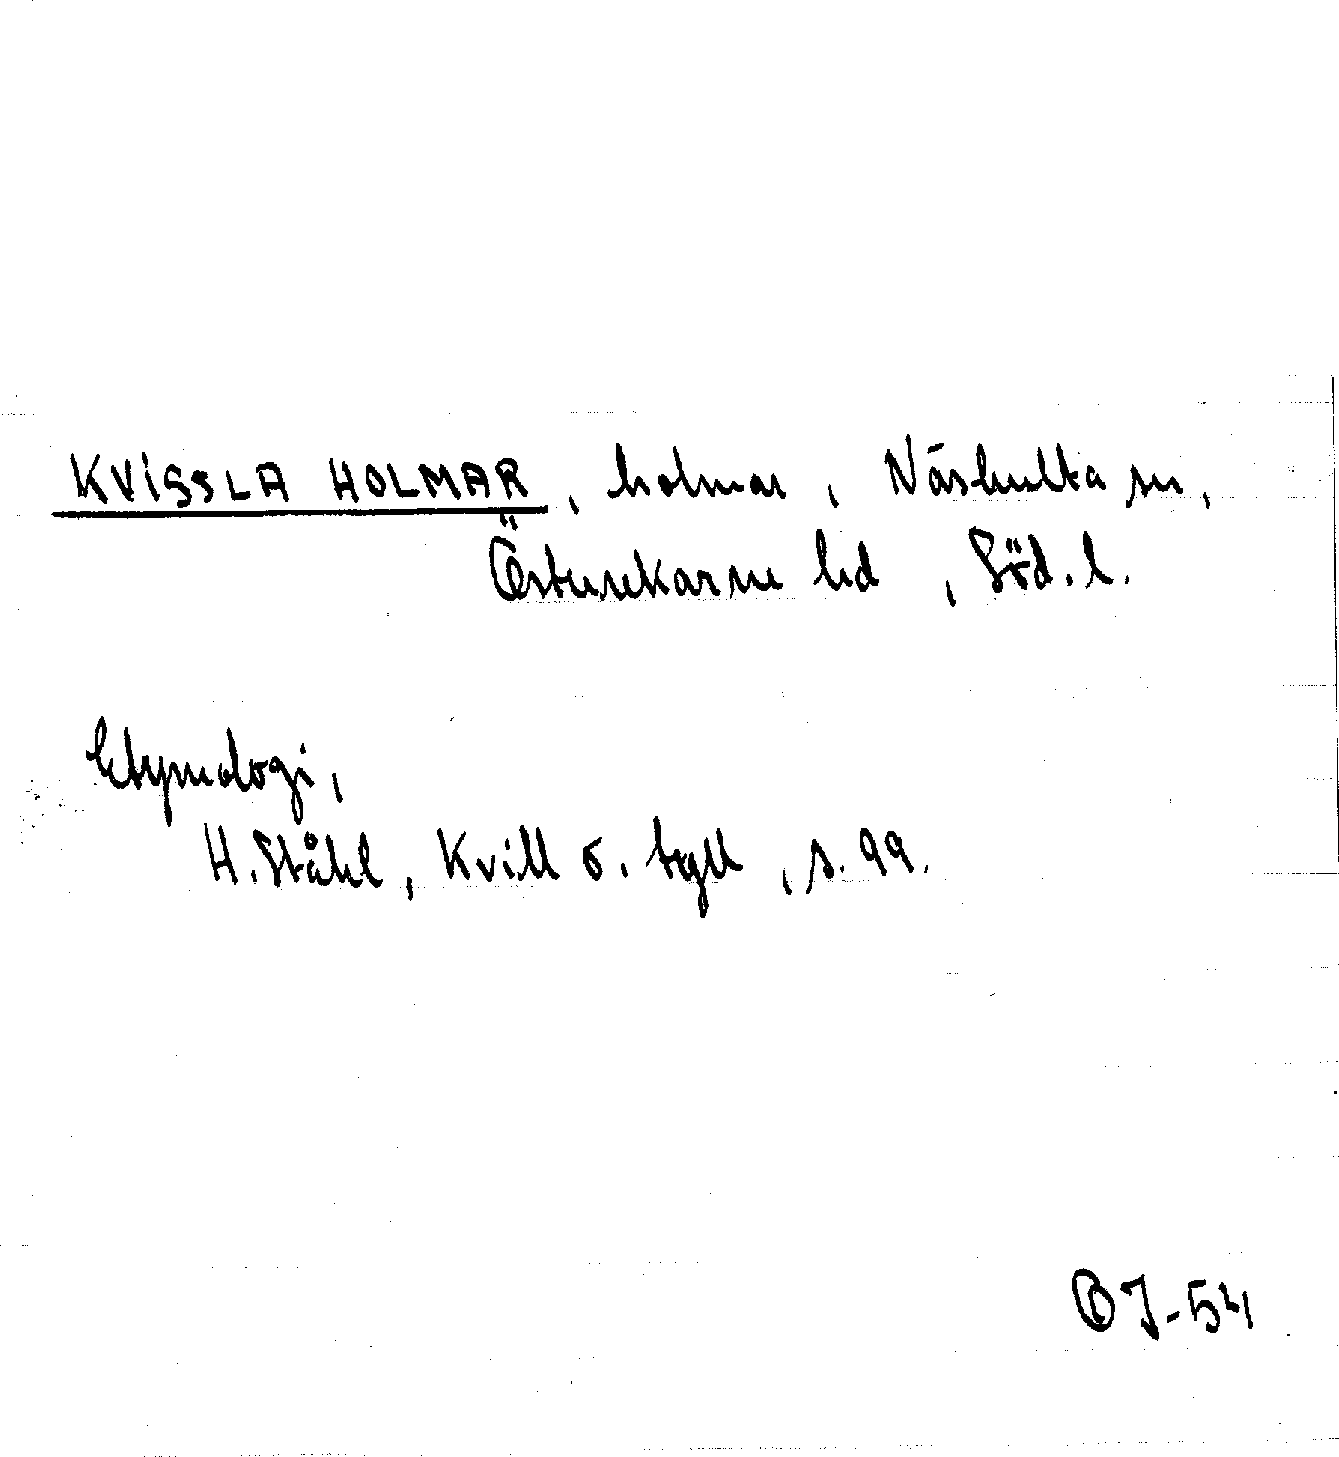 KVISSLA HOLMAR, holmar, Näshulta sn,
Österrekarne hd, Söd. l.
Etymologi,
H. Ståhl, Kvill o. tyll, s. 99.
OJ-54